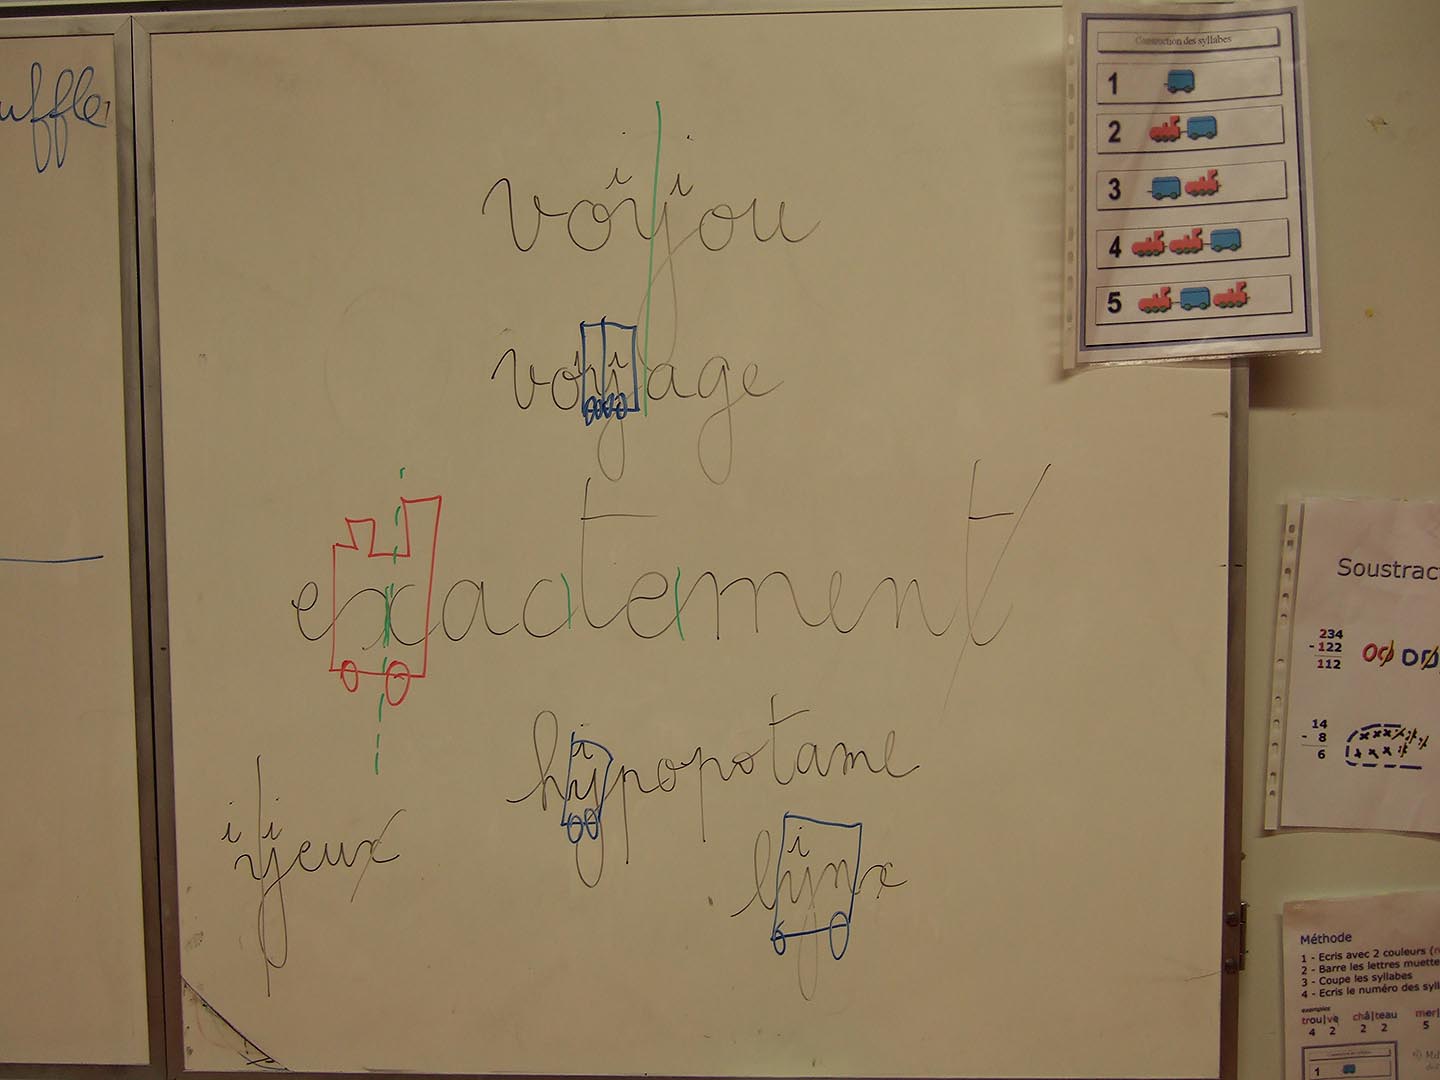 uffler
Construction des syllabes
1
2
3
4
5
i i
voyou
i i
voyage
exactement
i
hypopotame
i i
yeux
i
lynx
Soustract
234
- 122
112
14
- 8
6
Méthode
1 - Ecris avec 2 couleurs (n
2 - Barre les lettres muette
3 - Coupe les syllabes
4 - Ecris le numéro des syll
exemples
trou|ve châ|teau mer|
4 2 2 2 5
1